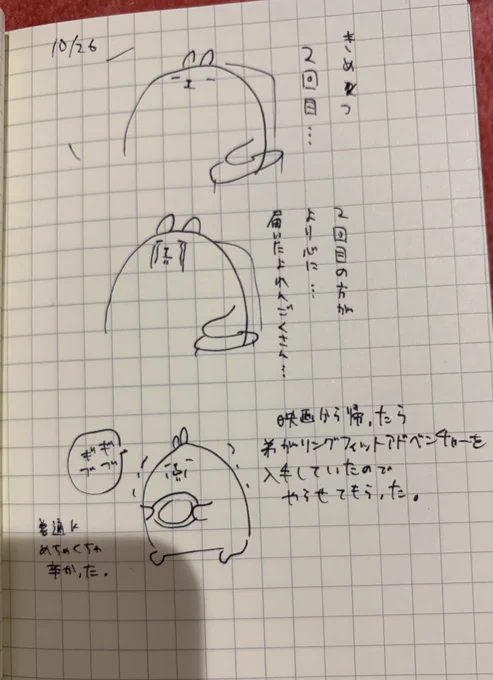 10/26
きめつ
2回目…
2回目の方が
より心に…
届いたよれんごくさん…
映画から帰ったら
弟がリングフィットアドベンチャーを
入手していたので
やらせてもらった。
ぎぎ
ブブ
普通に
めちゃくちゃ
辛かった。